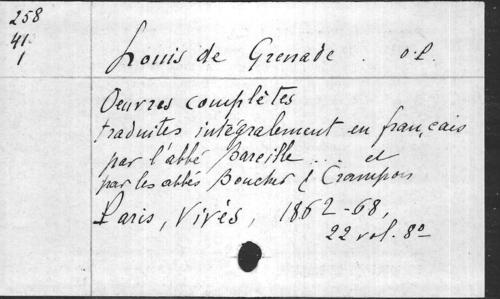 258
41
1
Louis de Grenade. o.P.
Oeuvres complètes
traduites intégralement en français
par l'abbé Bareille ... et
par les abbés Boucher & Crampon
Paris, Vivés, 1862-68,
22 vol. 8º